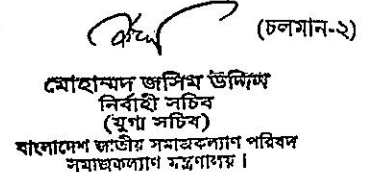 (চলমান-২)
মোহাম্মদ জসিম উদ্দিন
নির্বাহী সচিব
(যুগ্ম সচিব)
বাংলাদেশ জাতীয় সমাজকল্যাণ পরিষদ
সমাজকল্যাণ মন্ত্রণালয়।